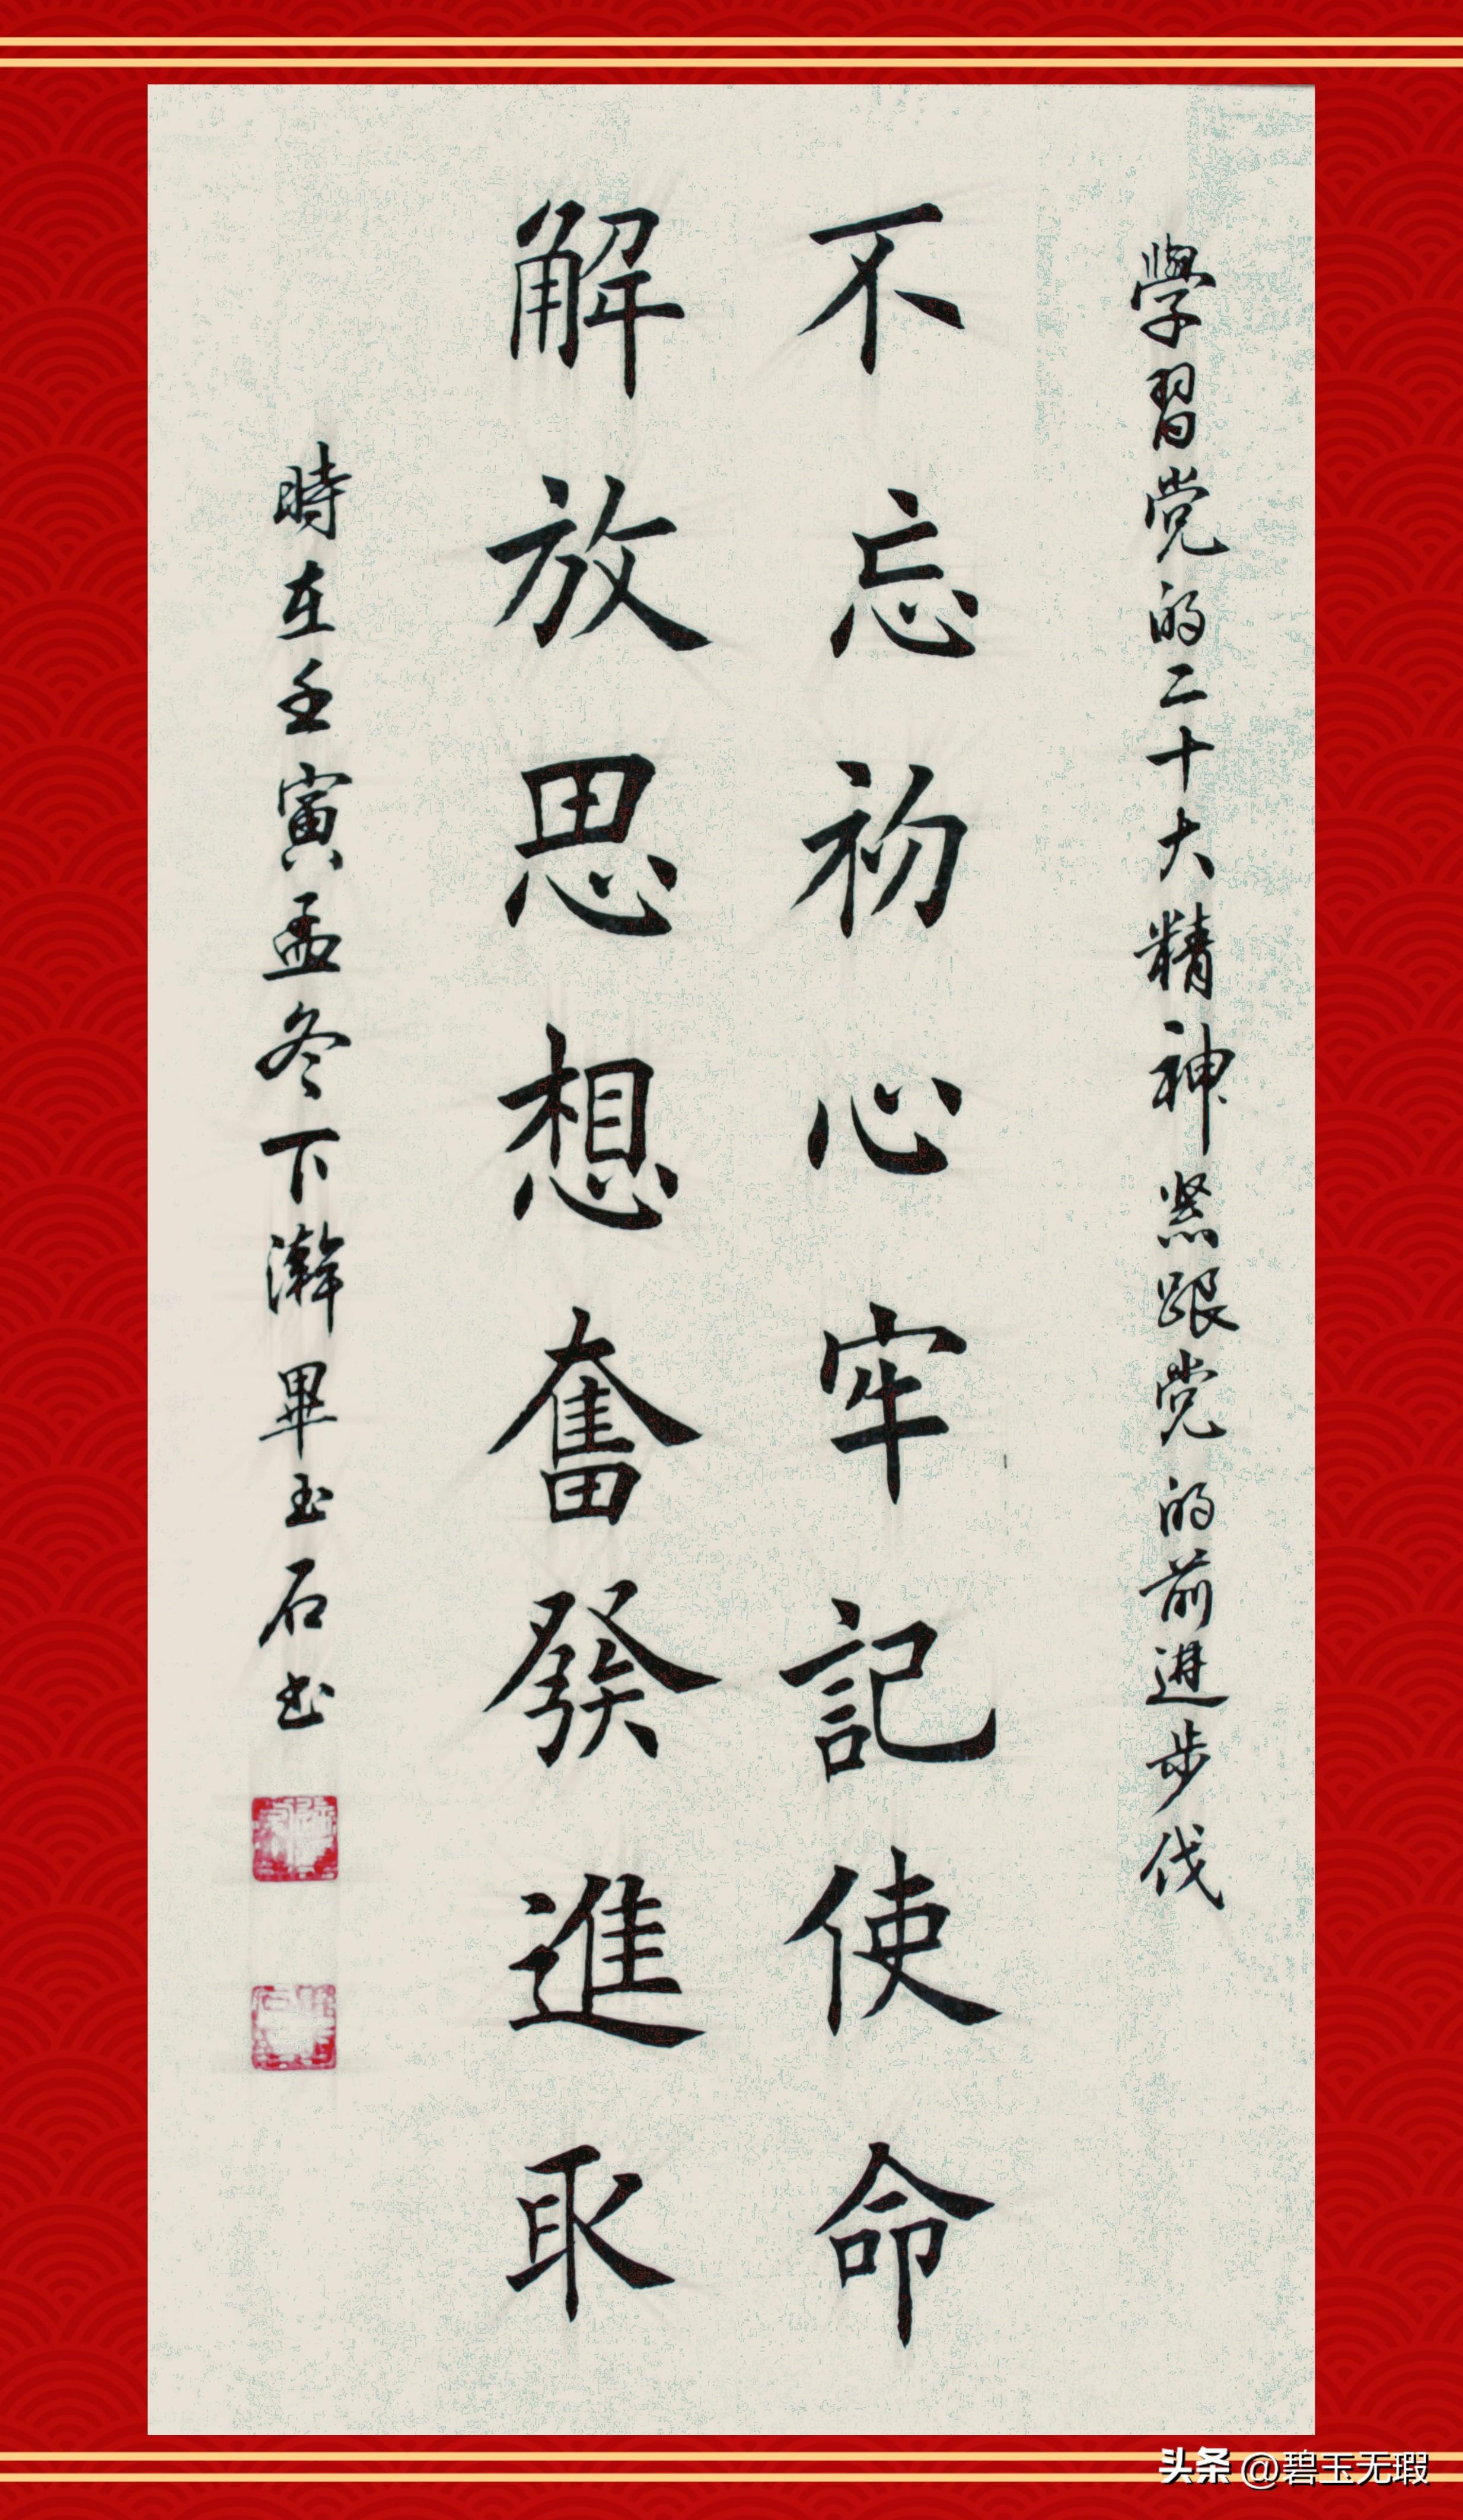 學習党的二十大精神紧跟党的前進步伐
不忘初心牢記使命
解放思想奮發進取
時在壬寅孟冬下澣畢玉石书
头条 @碧玉无瑕